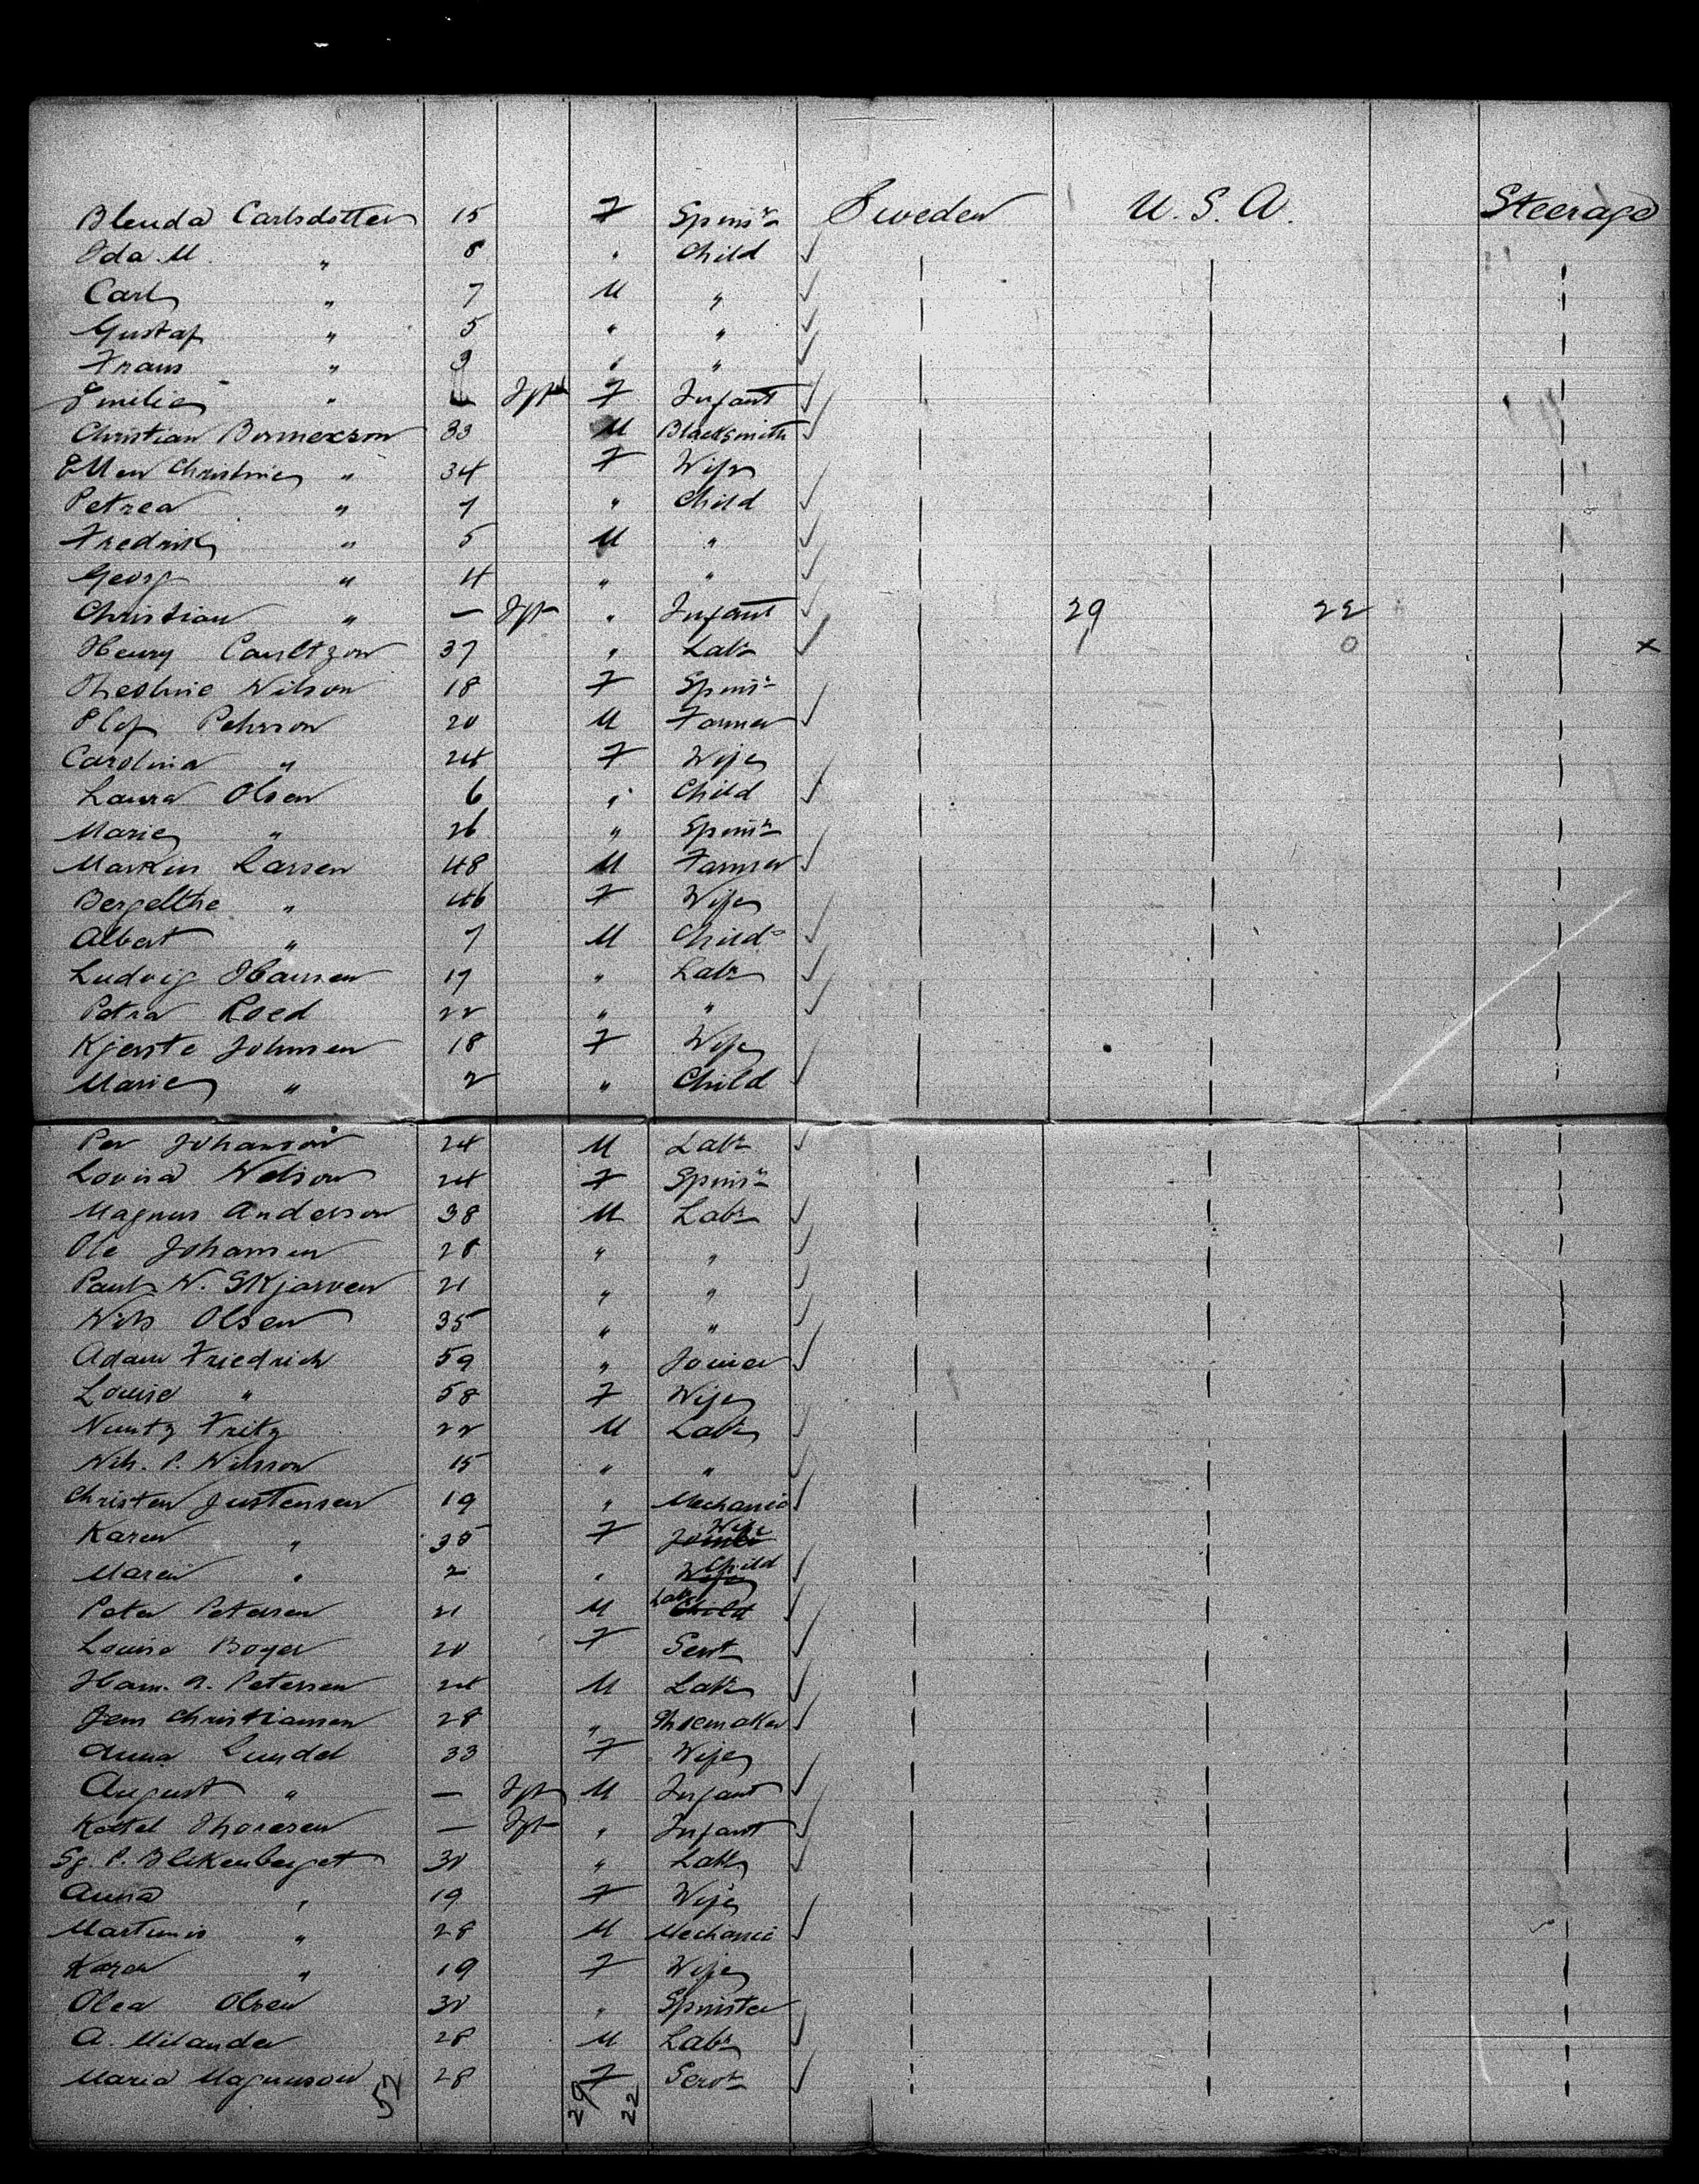 Blenda Carlsdotter 15 F Spinsr Sweden U.S.A. Steerage
Ida M. " 8 " Child
Carl " 7 M "
Gustaf " 5 " "
Frans " 3 " "
Emilie " Inft F Infant
Christian 33 M Blacksmith
Ellen Christine " 34 F Wife
Petrea " 7 " Child
Fredrik " 5 M "
Georg " 4 " "
Christian " — Inft " Infant 29 22
Henry 37 " Labr 0 x
Wilson 18 F Spinsr
Olof Pehrson 20 M Farmer
Carolina " 24 F Wife
Laura Olsen 6 " Child
Marie " 26 " Spinsr
Markus Larsen 48 M Farmer
Bergethe " 46 F Wife
Albert " 7 M Child
Ludvig Hansen 17 " Labr
Petra Roed 22 " "
Kjerste Johnsen 18 F Wife
Marie " 2 " Child
Per Johanson 24 M Labr
Lovisa Nelson 24 F Spinsr
Magnus Anderson 38 M Labr
Ole Johansen 28 " "
Paul N. Skjarven 21 " "
Nils Olsen 35 " "
Adam Friedrich 59 " Joiner
Louise " 58 F Wife
Nuntz Fritz 22 M Labr
Nils. P. Nilsson 15 " "
Christen Justensen 19 " Mechanic
Karen " 35 F Joiner Wife
Maren " 2 " Wife Child
Peter Petersen 21 M Labr Child
Louise Boyer 20 F Servt
Hans. A. Petersen 24 M Labr
Jens Christiansen 28 " Shoemaker
Anna Lundel 33 F Wife
August " — Inft M Infant
Kettel Thoresen — Inft " Infant
P. Blekenberget 30 " Labr
Anna " 19 F Wife
Martinus " 28 M Mechanic
Karen " 19 F Wife
Olea Olsen 30 " Spinster
A. Milander 28 M Labr
Maria Magnusson 28 F Servt
52 29 22